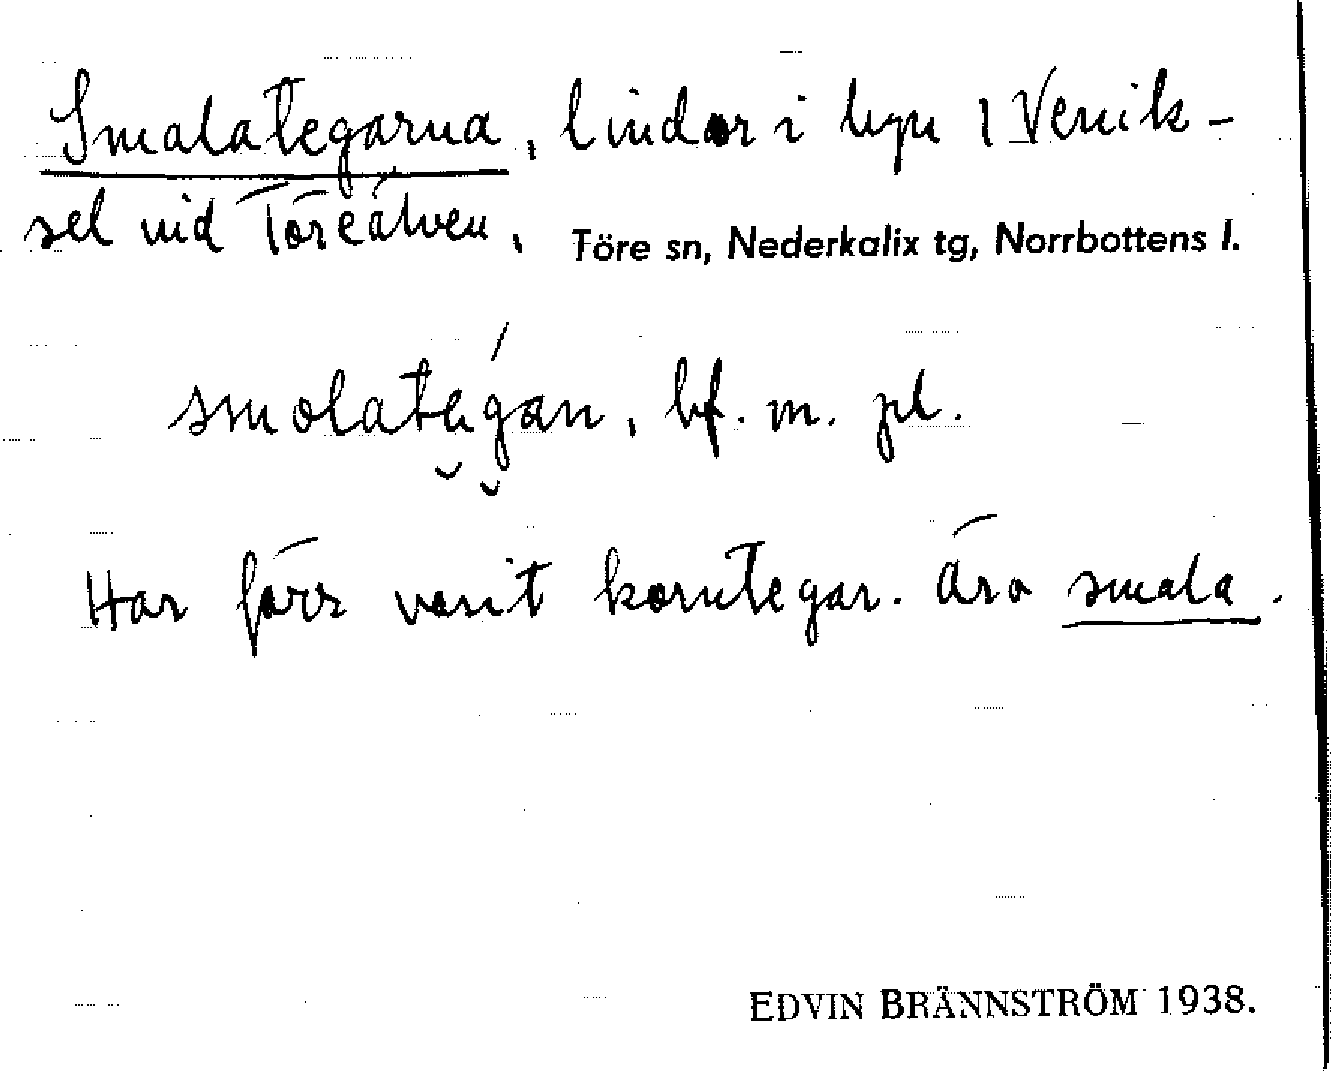 Smalategarna, lindor i byn 1 Vevik-
sel vid Töreälven, Töre sn, Nederkalix tg, Norrbottens l.
smolategan, bf. m. pl.
Har förr varit korntegar. Äro smala.
EDVIN BRÄNNSTRÖM 1938.